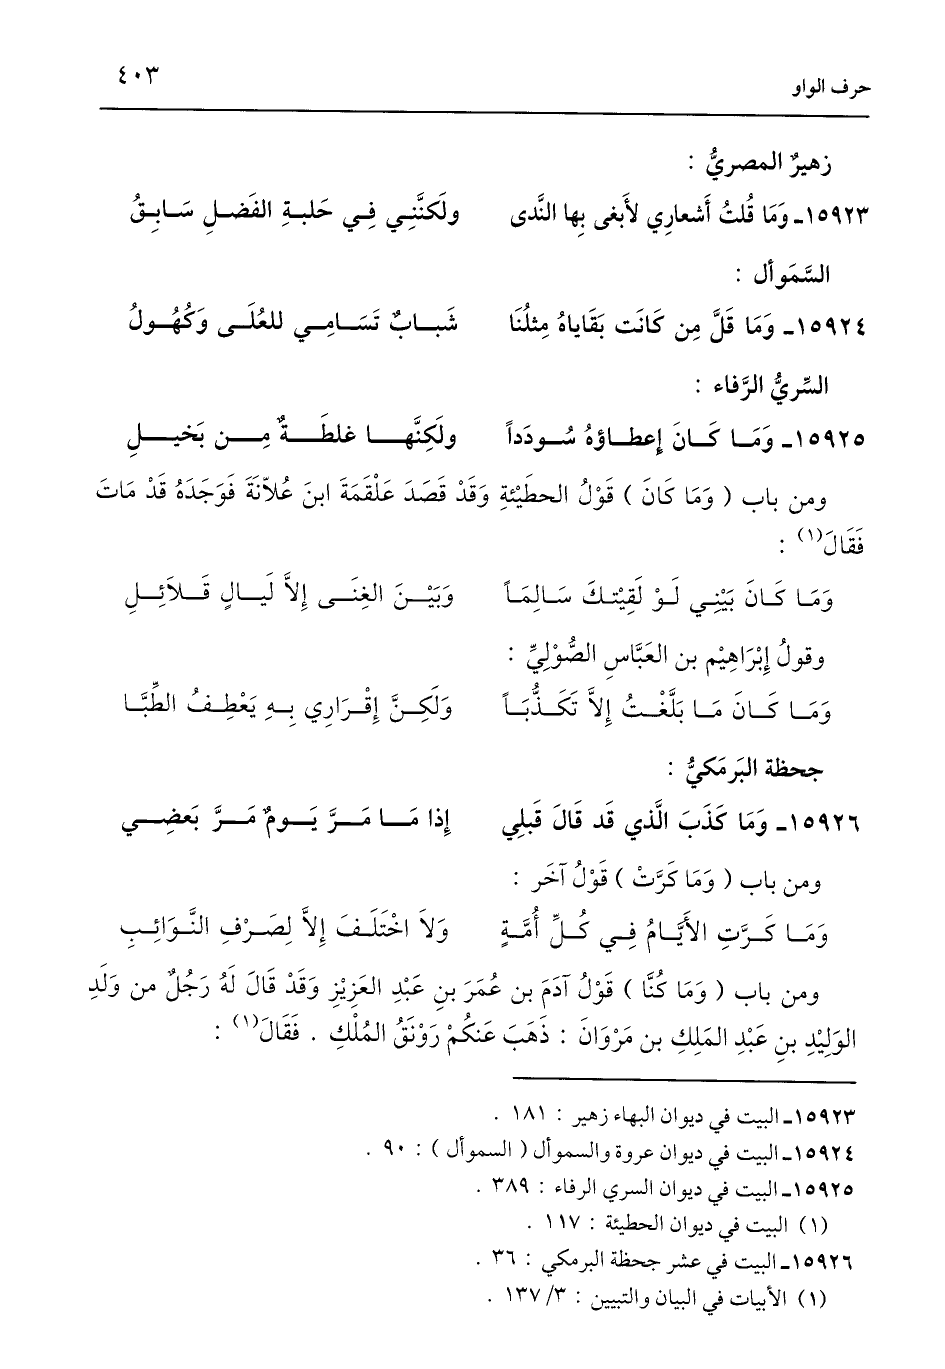 حرف الواو ٤٠٣
زهيرٌ المصريُّ :
١٥٩٢٣ـ وَمَا قُلتُ أَشعارِي لأَبغى بِها النَّدى ولَكنَّنِي فِي حَلبةِ الفَضلِ سَابِقُ
السَّمَوأل :
١٥٩٢٤ـ وَمَا قَلَّ مِن كَانَت بَقَاياهُ مِثلُنَا شَبابٌ تَسَامِي للعُلَى وَكُهُولُ
السِّريُّ الرَّفاء :
١٥٩٢٥ـ وَمَا كَانَ إِعطاؤهُ سُودَداً ولَكِنَّهَا غلطَةٌ مِن بَخيلِ
ومن باب ( وَمَا كَانَ ) قَوْلُ الحطَيْئةِ وَقَدْ قَصَدَ عَلْقَمَةَ ابنَ عُلاَثَةَ فَوَجَدَهُ قَدْ مَاتَ
فَقَالَ(١) :
وَمَا كَانَ بَيْنِي لَوْ لَقِيْتكَ سَالِمَاً وَبَيْنَ الغِنَى إِلاَّ لَيالٍ قَلاَئِلِ
وقولُ إِبْرَاهِيْم بن العَبَّاسِ الصُّوْلِيِّ :
وَمَا كَانَ مَا بَلَّغْتُ إِلاَّ تَكَذُّبَاً وَلَكِنَّ إِقْرَارِي بِهِ يَعْطِفُ الطِّبَّا
جحظة البَرمَكيُّ :
١٥٩٢٦ـ وَمَا كَذَبَ الَّذي قَد قَالَ قَبلِي إِذا مَا مَرَّ يَومٌ مَرَّ بَعضِي
ومن باب ( وَمَا كَرَّتْ ) قَوْلُ آخَر :
وَمَا كَرَّتِ الأَيَّامُ فِي كُلِّ أُمَّةٍ وَلاَ اخْتَلَفَ إِلاَّ لِصَرْفِ النَّوَائِبِ
ومن باب ( وَمَا كُنَّا ) قَوْلُ آدَمَ بن عُمَرَ بنِ عَبْدِ العَزِيْزِ وَقَدْ قَالَ لَهُ رَجُلٌ من وَلَدِ
الوَلِيْدِ بنِ عَبْدِ المَلِكِ بن مَرْوَانَ : ذَهَبَ عَنكُمْ رَوْنَقُ المُلْكِ . فَقَالَ(١) :
١٥٩٢٣ـ البيت في ديوان البهاء زهير : ١٨١ .
١٥٩٢٤ـ البيت في ديوان عروة والسموأل ( السموأل ) : ٩٠ .
١٥٩٢٥ـ البيت في ديوان السري الرفاء : ٣٨٩ .
(١) البيت في ديوان الحطيئة : ١١٧ .
١٥٩٢٦ـ البيت في عشر جحظة البرمكي : ٣٦ .
(١) الأبيات في البيان والتبيين : ٣/ ١٣٧ .